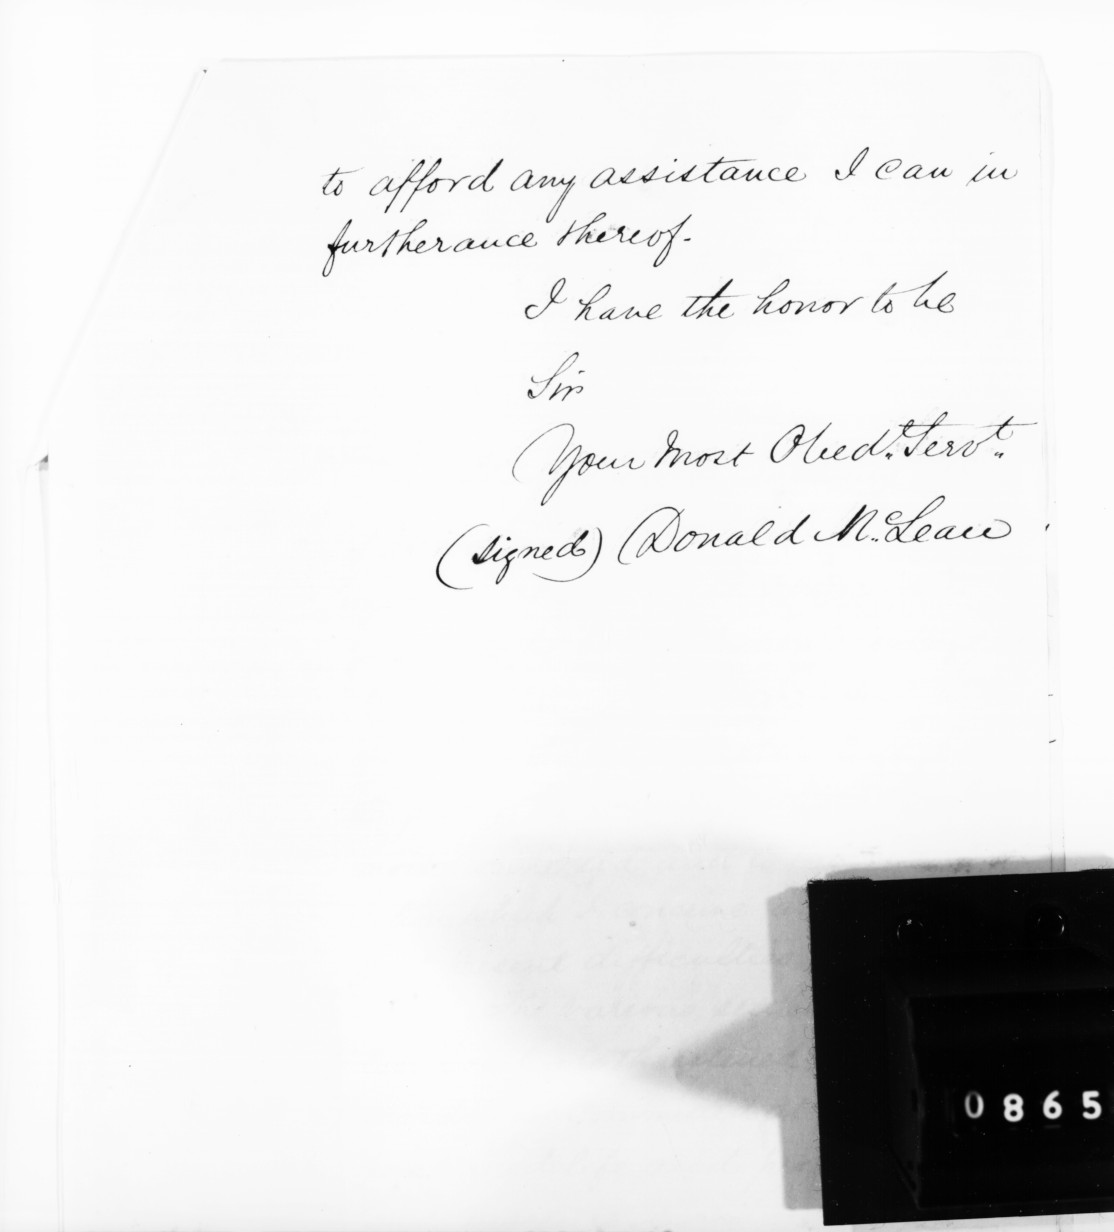 to afford any assistance I can in
furtherance thereof.
I have the honor to be
Sir
Your Most Obedt. Servt.
(signed) Donald McLean
0865